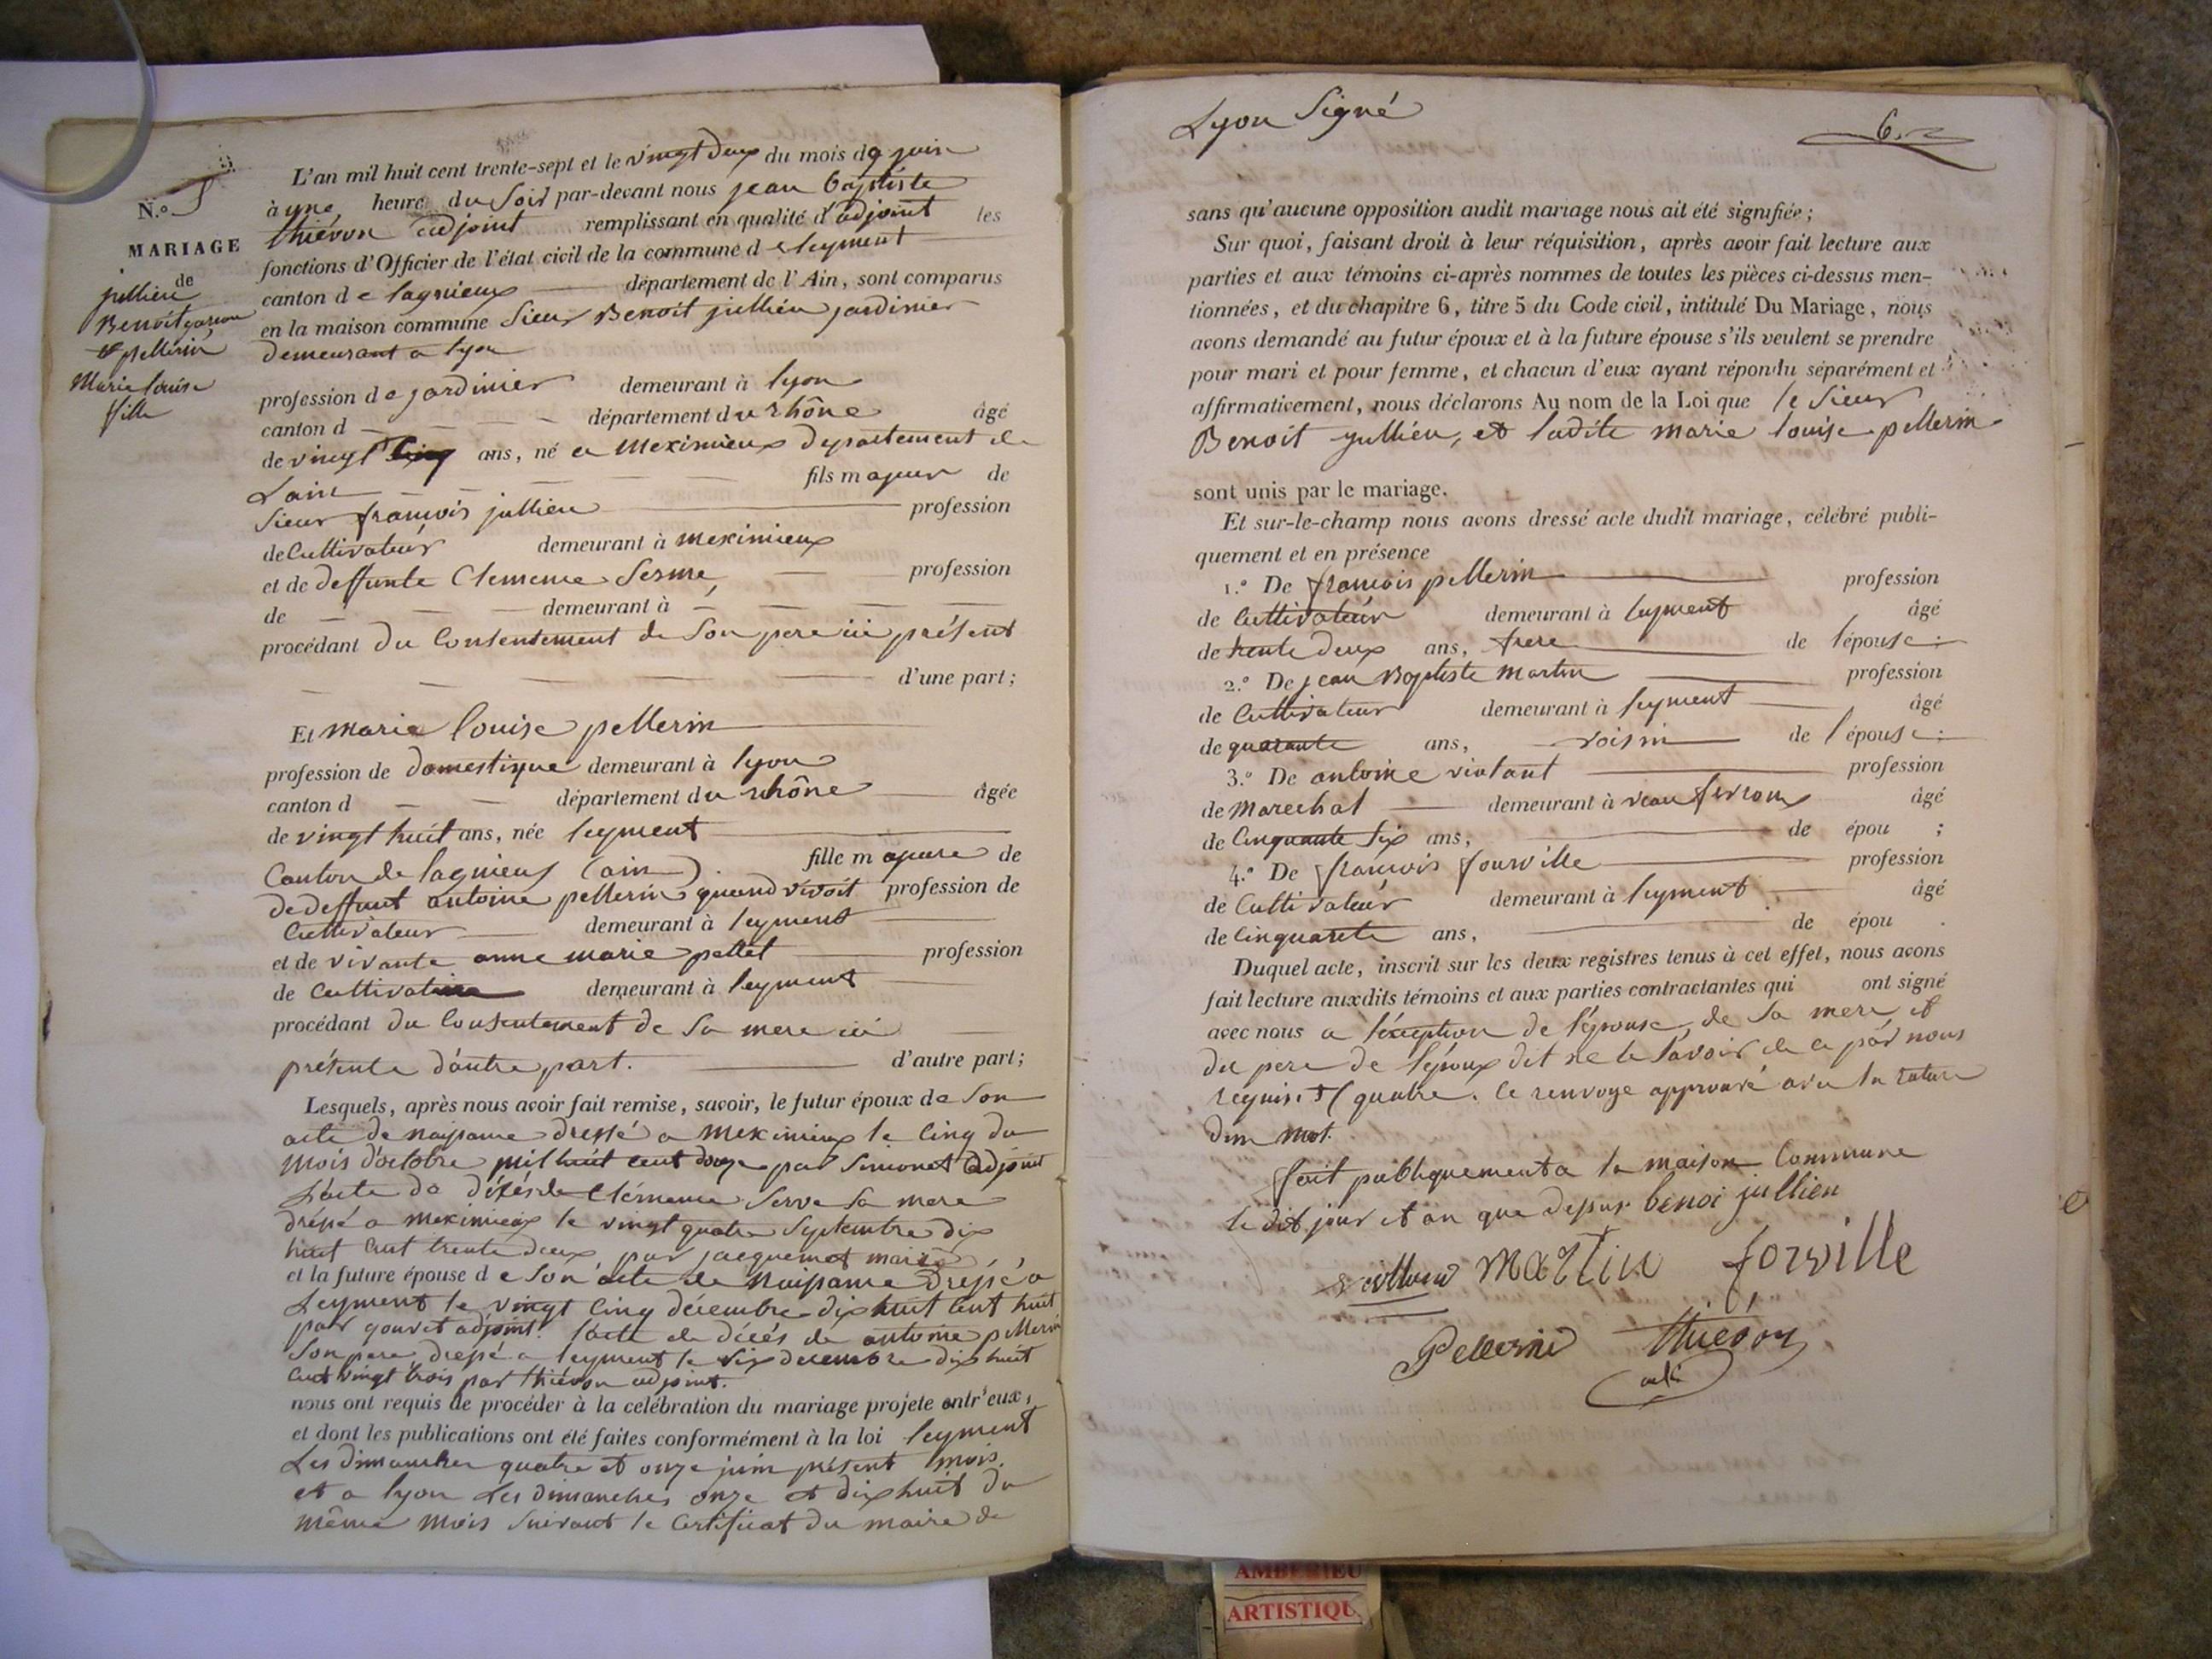 L'an mil huit cent trente-sept et le vingt deux du mois de juin
N.º 5
à une heure du soir par-devant nous jean baptiste
thiévon adjoint remplissant en qualité d'adjoint les
MARIAGE
fonctions d'Officier de l'état civil de la commune de leyment
de
jullien
Benoit garcon
et pellerin
Marie louise
fille
canton de lagnieux département de l'Ain, sont comparus
en la maison commune Sieur Benoit jullien jardinier
demeurant a lyon
profession de jardinier demeurant à lyon
canton d département du rhône âgé
de vingt cinq ans, né a Meximieux departement de
Lain fils majeur de
Sieur françois jullien profession
de Cultivateur demeurant à meximieux
et de deffunte Clemence Serve profession
de demeurant à
procédant du Consentement de Son pere ici présent
d'une part;
Et marie louise pellerin
profession de domestique demeurant à lyon
canton d département du rhône âgée
de vingt huit ans, née leyment
Canton de lagnieux (ain) fille majeure de
de deffunt antoine pellerin quand vivoit profession de
Cultivateur demeurant à leyment
et de vivante anne marie pellet profession
de Cultivatrice demeurant à leyment
procédant du Consentement de Sa mere ici
présente d'autre part. d'autre part;
Lesquels, après nous avoir fait remise, savoir, le futur époux de Son
acte de naissance dressé a meximieux le Cinq du
mois d'octobre mil huit cent douze par Simonet adjoint
L'acte de décés de Clémence Serve Sa mere
dréssé a meximieux le vingt quatre Septembre dix
huit cent trente deux par jacquemet maire
et la future épouse de Son acte de naissance dréssé a
Leyment le vingt Cinq décembre dix huit Cent huit
par gouvet adjoint. l'acte de décés de antoine pellerin
Son pere dressé a leyment le Six decembre dix huit
Cent vingt trois par thiévon adjoint.
nous ont requis de procéder à la celébration du mariage projete entr'eux,
et dont les publications ont été faites conformément à la loi leyment
Les dimanches quatre et onze juin présent mois.
et a lyon Les dimanches onze et dix huit du
même mois Suivant le Certificat du maire de
Lyon Signé
6.
sans qu'aucune opposition audit mariage nous ait été signifiée;
Sur quoi, faisant droit à leur réquisition, après avoir fait lecture aux
parties et aux témoins ci-après nommes de toutes les pièces ci-dessus men-
tionnées, et du chapitre 6, titre 5 du Code civil, intitulé Du Mariage, nous
avons demandé au futur époux et à la future épouse s'ils veulent se prendre
pour mari et pour femme, et chacun d'eux ayant répondu séparément et
affirmativement, nous déclarons Au nom de la Loi que le Sieur
Benoit jullien, et ladite marie louise pellerin
sont unis par le mariage.
Et sur-le-champ nous avons dressé acte dudit mariage, célébré publi-
quement et en présence
1.º De françois pellerin profession
de Cultivateur demeurant à leyment âgé
de trente deux ans, frere de l'épouse;
2.º De jean Baptiste martin profession
de Cultivateur demeurant à leyment âgé
de quarante ans, voisin de l'épouse;
3.º De antoine violant profession
de Marechal demeurant à âgé
de Cinquante Six ans, de épou ;
4.º De françois fourville profession
de Cultivateur demeurant à leyment âgé
de Cinquante ans, de épou .
Duquel acte, inscrit sur les deux registres tenus à cet effet, nous avons
fait lecture auxdits témoins et aux parties contractantes qui ont signé
avec nous a l'éxception de l'épouse, de Sa mere, et
du pere de l'époux dit ne le Savoir de ce par nous
requis. quatre. Ce renvoye approuvé avec la rature
dun mot.
fait publiquement a la maison Commune
le dit jour et an que dessus. benoi jullien
Martin forville
Pellerin thiévon
adj.
AMBERIEU
ARTISTIQU